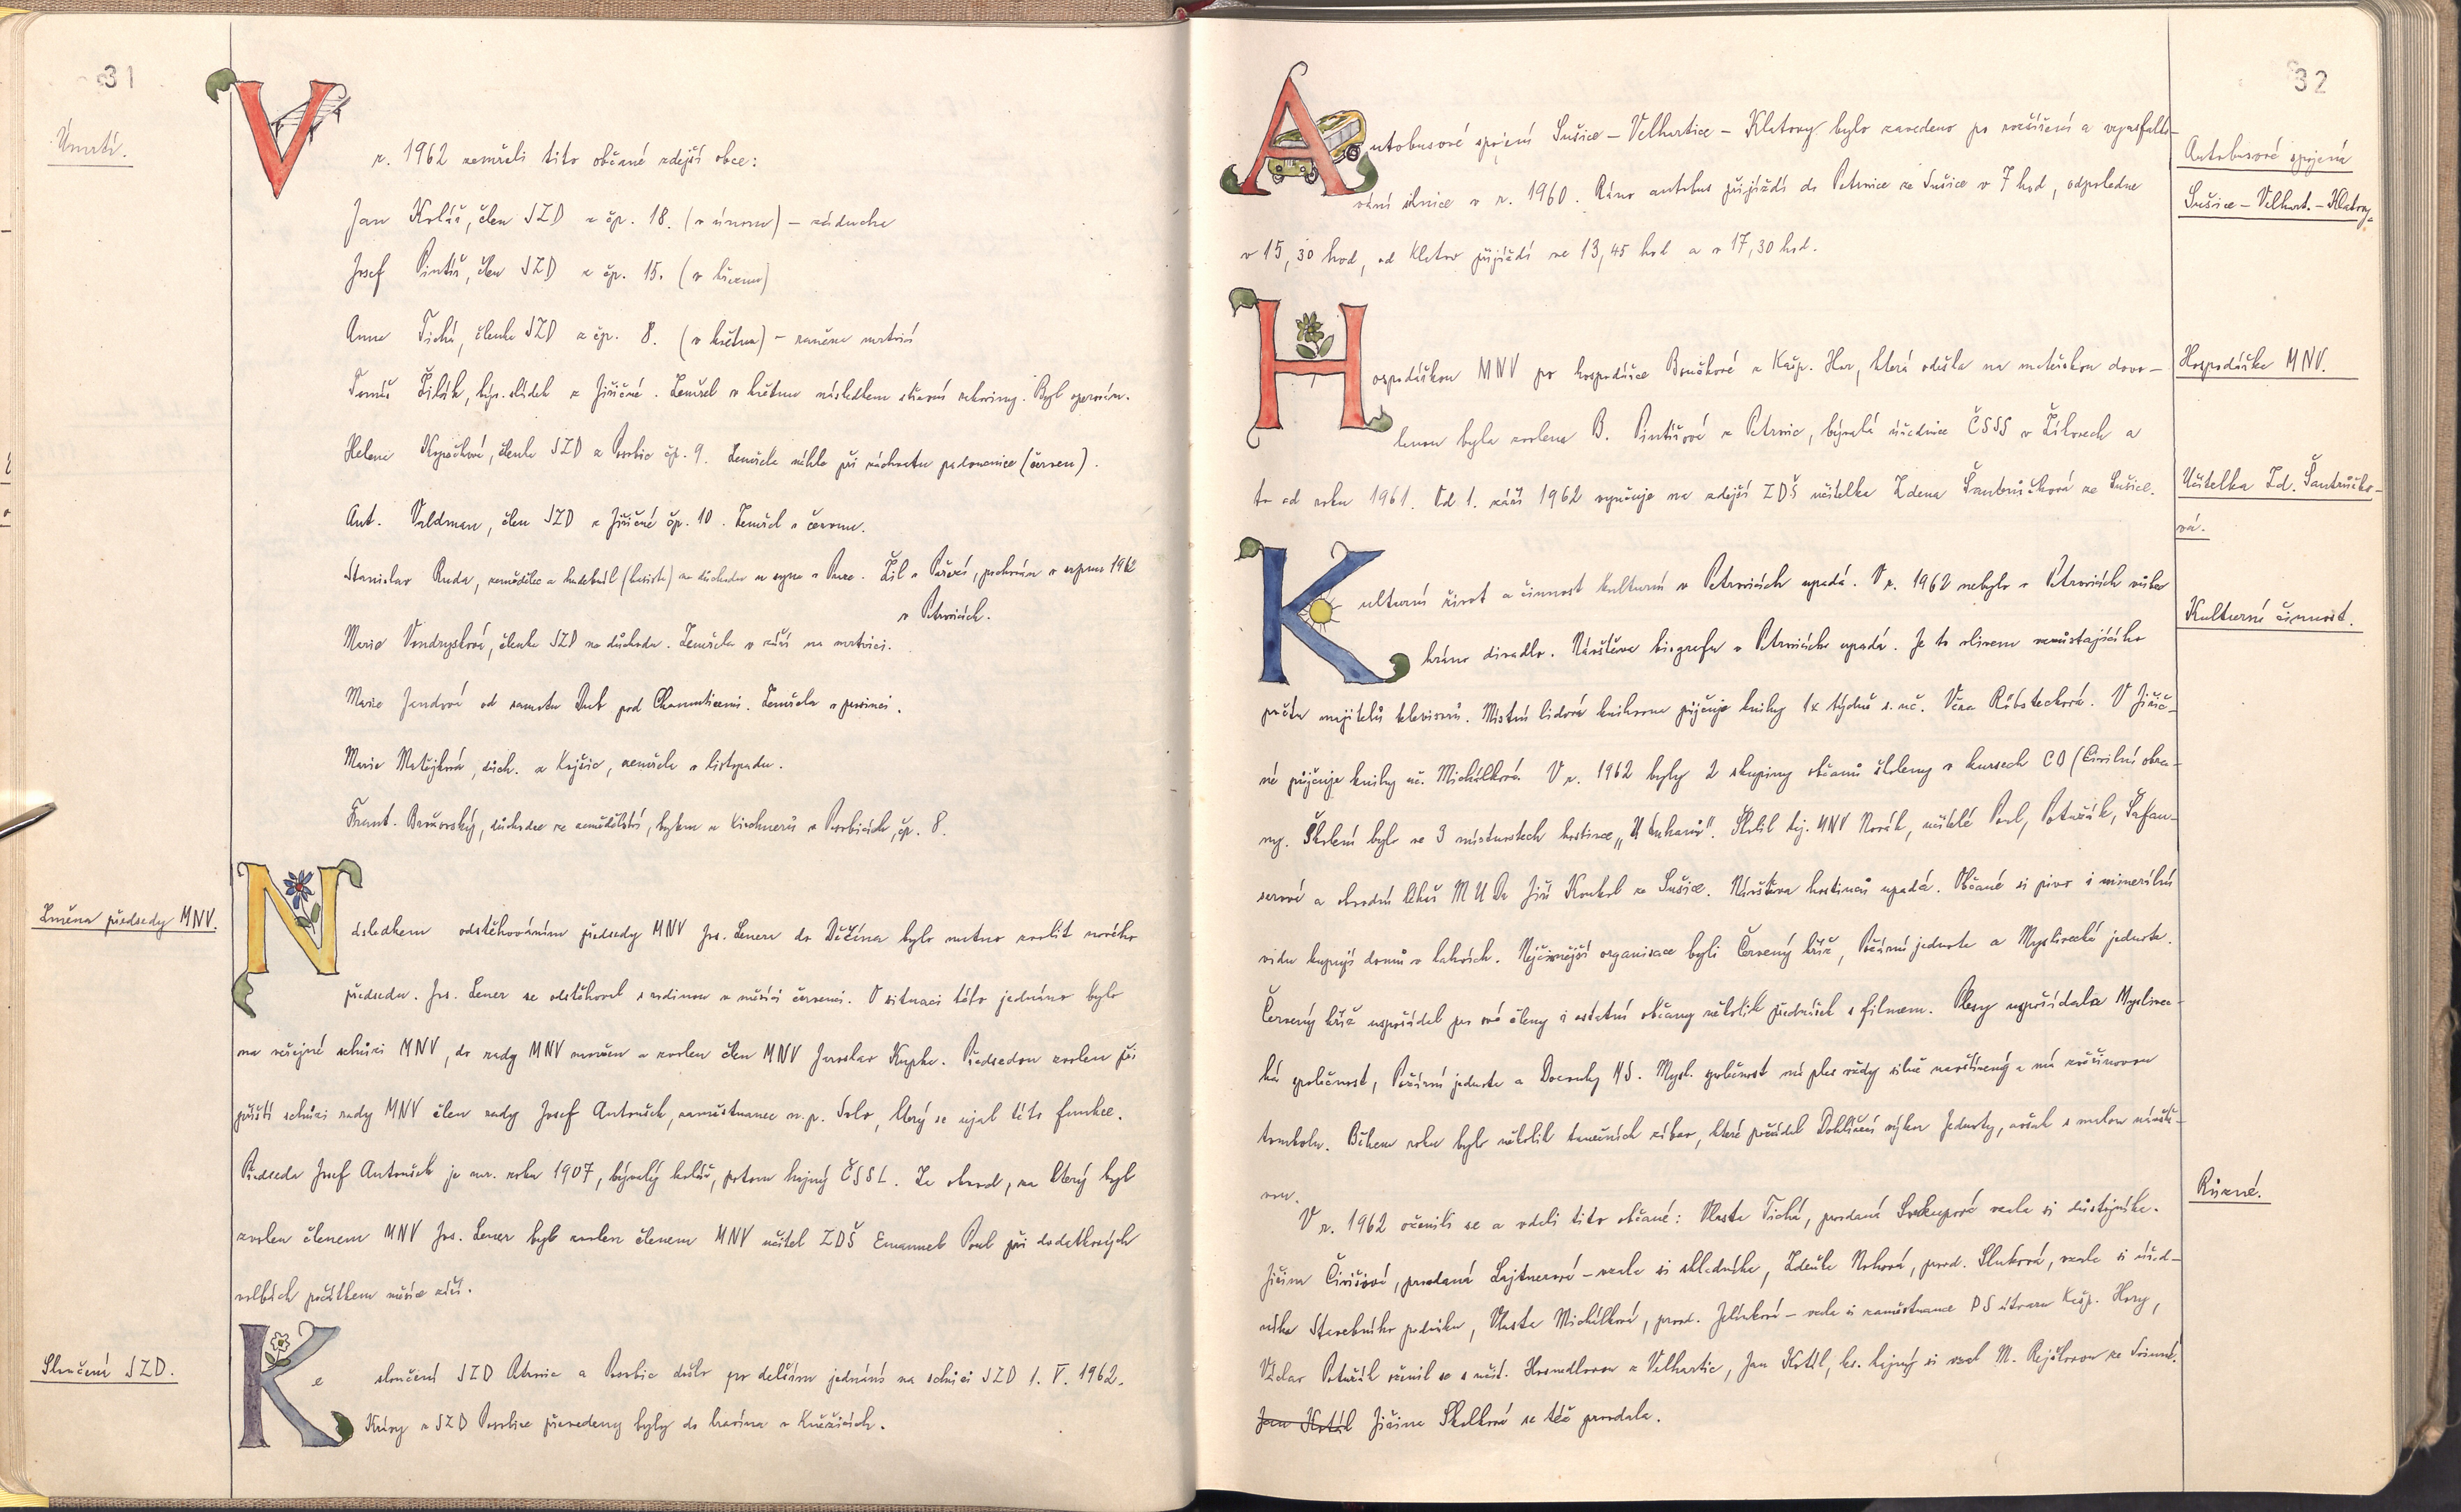 31
Úmrtí.
V r. 1962 zemřeli tito občané zdejší obce:
Jan Kolář, člen JZD z čp. 18. (v únoru) – záducha
Josef Pintíř, člen JZD z čp. 15. (v březnu)
Anna Tichá, členka JZD z čp. 8. (v květnu) – raněna mrtvicí
Tomáš Žilák, býv. sládek z Jiřičné. Zemřel v květnu následkem střevní rakoviny. Byl operován.
Helena Kopačková, členka JZD z Posobic čp. 9. Zemřela náhle při záchvatu padoucnice (červen).
Ant. Valdman, člen JZD z Jiřičné čp. 10. Zemřel v červnu.
Stanislav Ruda, zemědělec a hudebník (basista) na důchodu u syna v Praze. Žil v Pařezí, pochován v srpnu 1962
v Petrovicích.
Marie Vondrysková, členka JZD na důchodu. Zemřela v září na mrtvici.
Marie Jandová od samoty Dub pod Chamuticemi. Zemřela v prosinci.
Marie Matějková, důch. z Kojšic, zemřela v listopadu.
Frant. Brožovský, důchodce ze zemědělství, bytem u Kirchnerů v Posobicích, čp. 8.
Změna předsedy MNV.
Následkem odstěhováním předsedy MNV Jos. Lenera do Děčína bylo nutno zvolit nového
předsedu. Jos. Lener se odstěhoval s rodinou v měsíci červenci. V situaci této jednáno bylo
na veřejné schůzi MNV, do rady MNV navržen a zvolen člen MNV Jaroslav Kupka. Předsedou zvolen při
příští schůzi rady MNV člen rady Josef Antoušek, zaměstnanec n.p. Solo, který se ujal této funkce.
Předseda Josef Antoušek je nar. roku 1907, bývalý kolář, potom hajný ČSSL. Za obvod, za který byl
zvolen členem MNV Jos. Lener byl zvolen členem MNV učitel ZDŠ Emanuel Pool při dodatkových
volbách počátkem měsíce září.
Sloučení JZD.
Ke sloučení JZD Petrovic a Posobic došlo po delším jednání na schůzi JZD 1. V. 1962.
Krávy z JZD Posobice převedeny byly do kravína v Kněžicích.
32
Autobusové spojení Sušice – Velhartice – Klatovy bylo zavedeno po rozšíření a vyasfalto-
vání silnice v r. 1960. Ráno autobus přijíždí do Petrovic ze Sušice v 7 hod, odpoledne
v 15,30 hod, od Klatov přijíždí ve 13,45 hod a v 17,30 hod.
Autobusové spojení
Sušice – Velhart. – Klatovy.
Hospodářkou MNV po hospodářce Boučkové z Kašp. Hor, která odešla na mateřskou dovo-
lenou byla zvolena B. Pintířová z Petrovic, bývalá úřednice ČSSS v Žikovech a
to od roku 1961. Od 1. září 1962 vyučuje na zdejší ZDŠ učitelka Zdena Šantrůčková ze Sušice.
Hospodářka MNV.
Učitelka Zd. Šantrůčko-
vá.
Kulturní život a činnost kulturní v Petrovicích upadá. V r. 1962 nebylo v Petrovicích vůbec
hráno divadlo. Návštěva biografu v Petrovicích upadá. Je to vlivem vzrůstajícího
počtu majitelů televisorů. Místní lidová knihovna půjčuje knihy 1x týdně s. uč. Věra Röbstecková. V Jiřič-
né půjčuje knihy uč. Michálková. V r. 1962 byly 2 skupiny občanů školeny v kursech CO (Civilní obra-
ny. Školení bylo ve 3 místnostech hostince „U Suchanů". Školil taj. MNV Novák, učitelé Pool, Potužák, Šafan-
serová a obvodní lékař MUDr Jiří Koukol ze Sušice. Návštěva hostinců upadá. Občané si pivo i minerální
vodu kupují domů v lahvích. Nejčinnější organisace byli Červený kříž, Požární jednota a Myslivecká jednota.
Červený kříž uspořádal pro své členy i ostatní občany několik přednášek s filmem. Plesy uspořádala Myslivec-
ká společnost, Požární jednota a Dozorčí NS. Mysl. společnost má ples vždy silně navštívený a má zvěřinovou
tombolu. Během roku bylo několik tanečních zábav, které pořádal Dohlížecí výbor Jednoty, avšak s malou návště-
vou.
Kulturní činnost.
Různé.
V r. 1962 oženili se a vdali tito občané: Vlasta Tichá, provdaná Soukupová vzala si důstojníka.
Jiřina Čivišová, provdaná Lajtnerová – vzala si skladníka, Zdeňka Nohová, provd. Sluková, vzala si úřed-
níka Stavebního podniku, Vlasta Michálková, provd. Jelínková – vzala si zaměstnance PS útvaru Kašp. Hory,
Václav Potužák oženil se s učit. Hosnedlovou z Velhartic, Jan Kotál, les. hajný si vzal M. Rejškovou ze Svinné.
Jan Kotál Jiřina Skolková se též provdala.